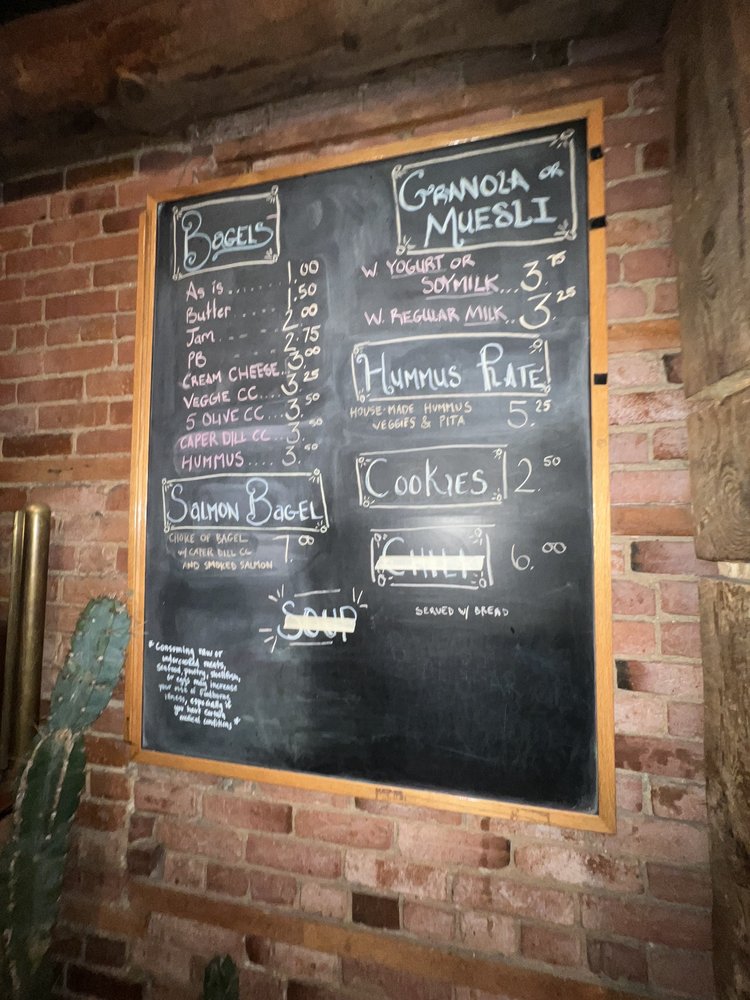 BAGELS
As is ........ 1.00
Butler ........ 1.50
Jam ........ 2.00
PB ........ 2.75
CREAM CHEESE... 3.00
VEGGIE CC .... 3.25
5 OLIVE CC ... 3.50
CAPER DILL CC ... 3.50
HUMMUS ..... 3.50
SALMON BAGEL
CHOICE OF BAGEL
W/ CAPER DILL CC 7.00
AND SMOKED SALMON
SOUP
* Consuming raw or
undercooked meats,
seafood, poultry, shellfish,
or eggs may increase
your risk of foodborne
illness, especially if
you have certain
medical conditions *
GRANOLA OR
MUESLI
W. YOGURT OR
SOYMILK.... 3.75
W. REGULAR MILK... 3.25
HUMMUS PLATE
HOUSE-MADE HUMMUS 5.25
VEGGIES & PITA
COOKIES 2.50
CHILI 6.00
SERVED W/ BREAD